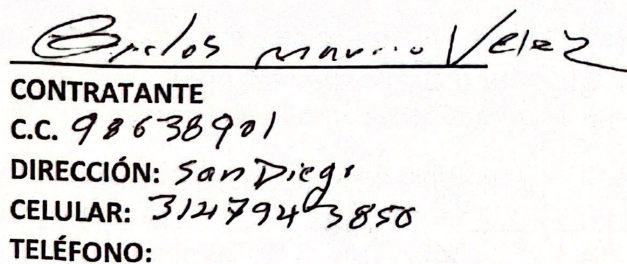 Carlos mario Velez
CONTRATANTE
C.C. 98638901
DIRECCIÓN: San Diego
CELULAR: 3147943850
TELÉFONO: